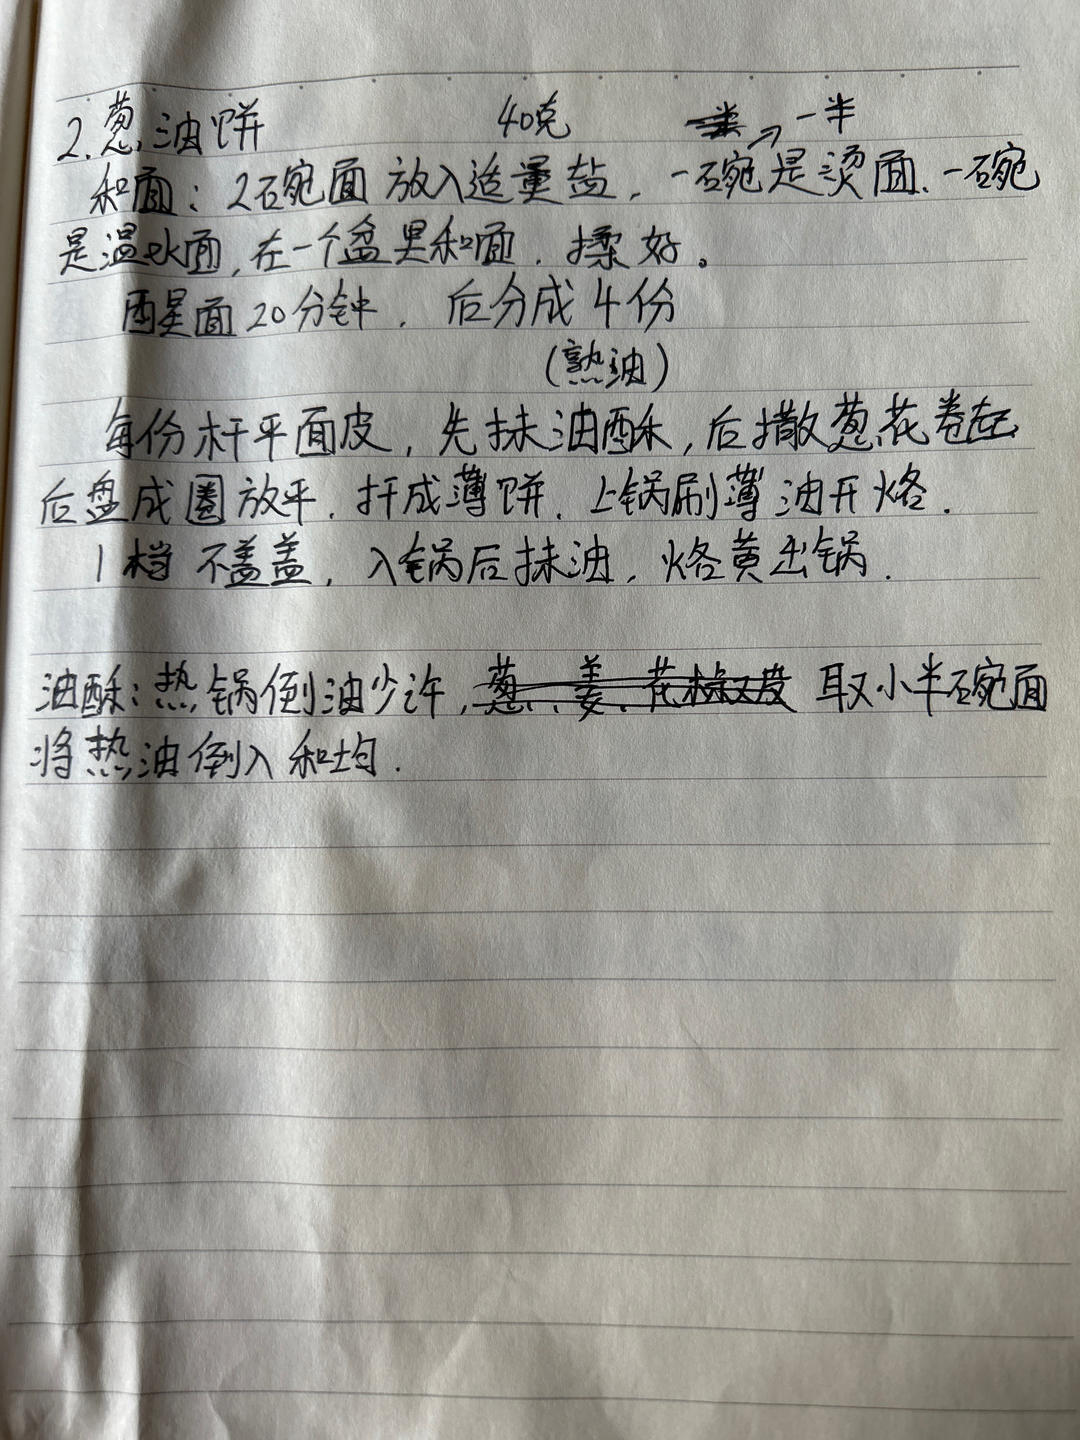 2.葱油饼 40克 一半
和面：2碗面放入适量盐，一碗是烫面、一碗
是温水面，在一个盆里和面，揉好。
醒面20分钟，后分成4份
（熟油）
每份杆平面皮，先抹油酥，后撒葱花卷起
后盘成圈放平，扦成薄饼，上锅刷薄油开烙.
1档不盖盖，入锅后抹油，烙黄出锅.
油酥：热锅倒油少许，葱、姜、花椒炒皮 取小半碗面
将热油倒入和均.